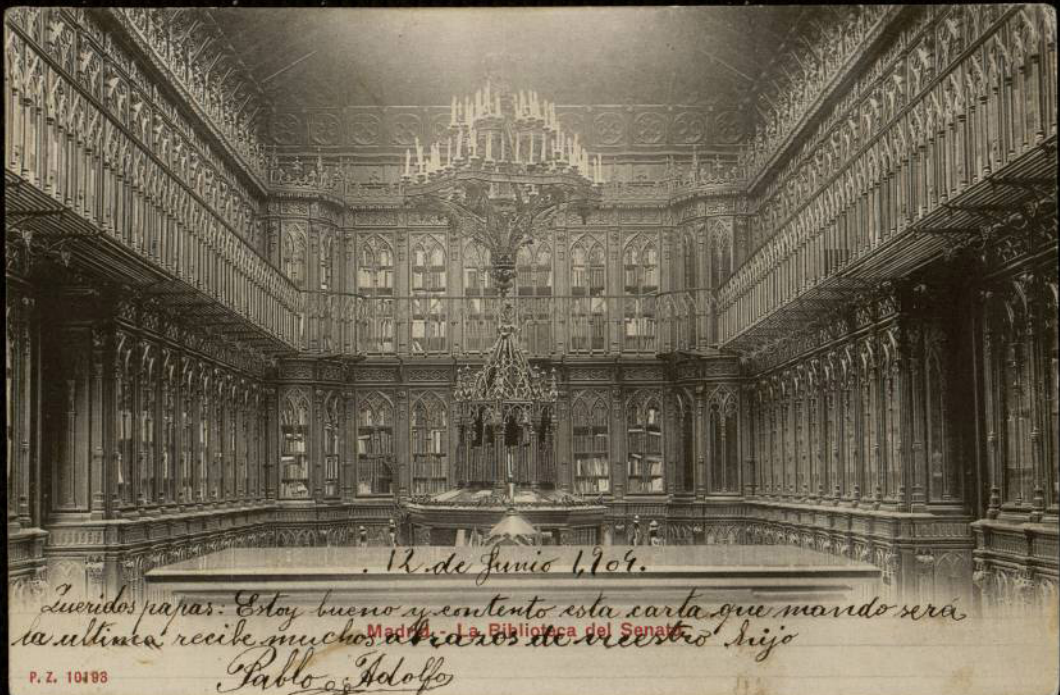 . 12 de Junio 1,904.
Queridos papas: Estoy bueno y contento esta carta que mando será
la ultima recibe muchos abrazos de vuestro hijo
Madrid. - La Biblioteca del Senado
Pablo Adolfo
P. Z. 10193